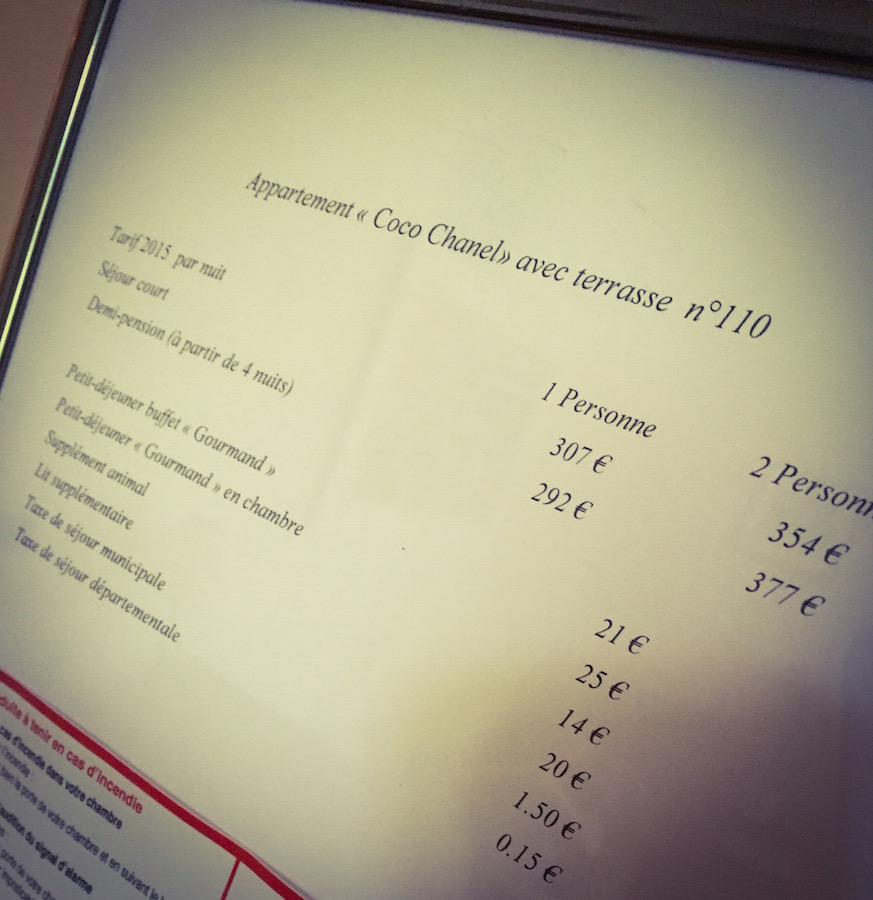 Appartement « Coco Chanel» avec terrasse n°110
Tarif 2015 par nuit 1 Personne 2 Personn
Séjour court 307 € 354 €
Demi-pension (à partir de 4 nuits) 292 € 377 €
Petit-déjeuner buffet « Gourmand » 21 €
Petit-déjeuner « Gourmand » en chambre 25 €
Supplément animal 14 €
Lit supplémentaire 20 €
Taxe de séjour municipale 1.50 €
Taxe de séjour départementale 0.15 €
duite à tenir en cas d'incendie
cas d'incendie dans votre chambre
l'incendie
bien la porte de votre chambre et en suivant le
audition du signal d'alarme
porte de votre